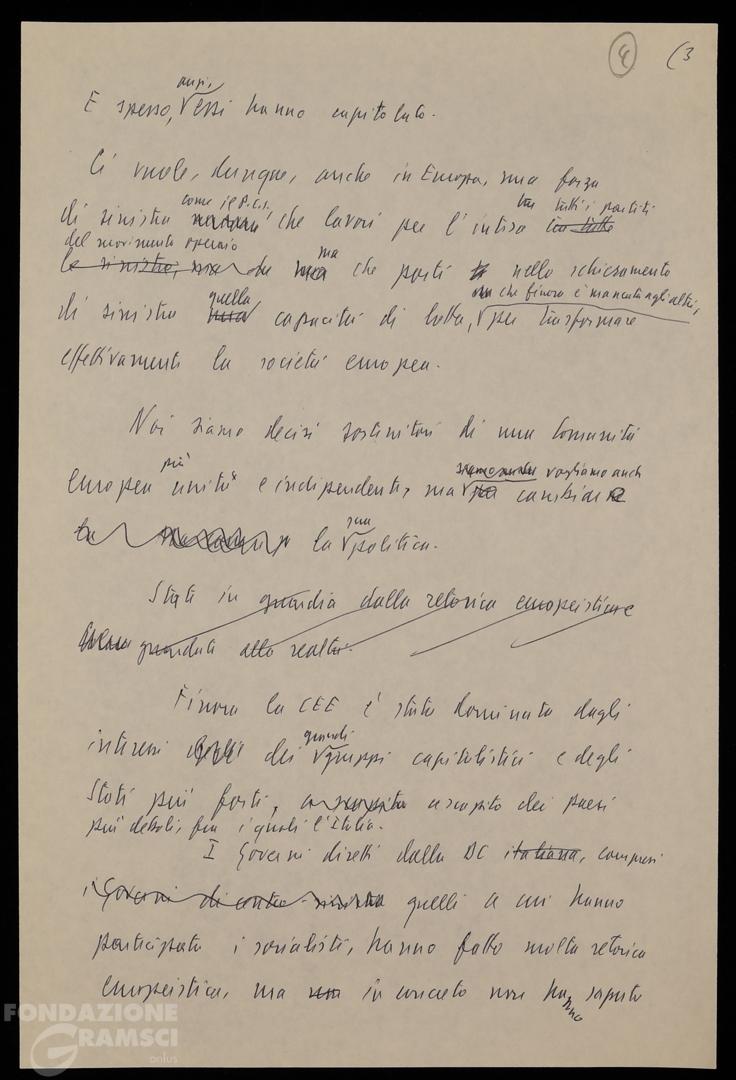 4 (3
anzi,
E spesso, essi hanno capitolato.
Ci vuole, dunque, anche in Europa, una forza
come il P.C.I. tra tutti i partiti
di sinistra che lavori per l'intesa tra tutte
del movimento operaio
le sinistre, ma che porti nello schieramento
quella che finora è mancata agli altri,
di sinistra una capacità di lotta, per trasformare
effettivamente la società europea.
Noi siamo decisi sostenitori di una Comunità
più vogliamo anche
europea unita e indipendente, ma cambiare
sua
la politica.
State in guardia dalla retorica europeistica e
guardate alla realtà.
Finora la CEE è stata dominata dagli
grandi
interessi dei gruppi capitalistici e degli
Stati più forti, a scapito dei paesi
più deboli, fra i quali l'Italia.
I Governi diretti dalla DC italiana, compresi
i Governi di centro-sinistra quelli a cui hanno
partecipato i socialisti, hanno fatto molta retorica
europeistica, ma in concreto non hanno saputo
FONDAZIONE
GRAMSCI
onlus